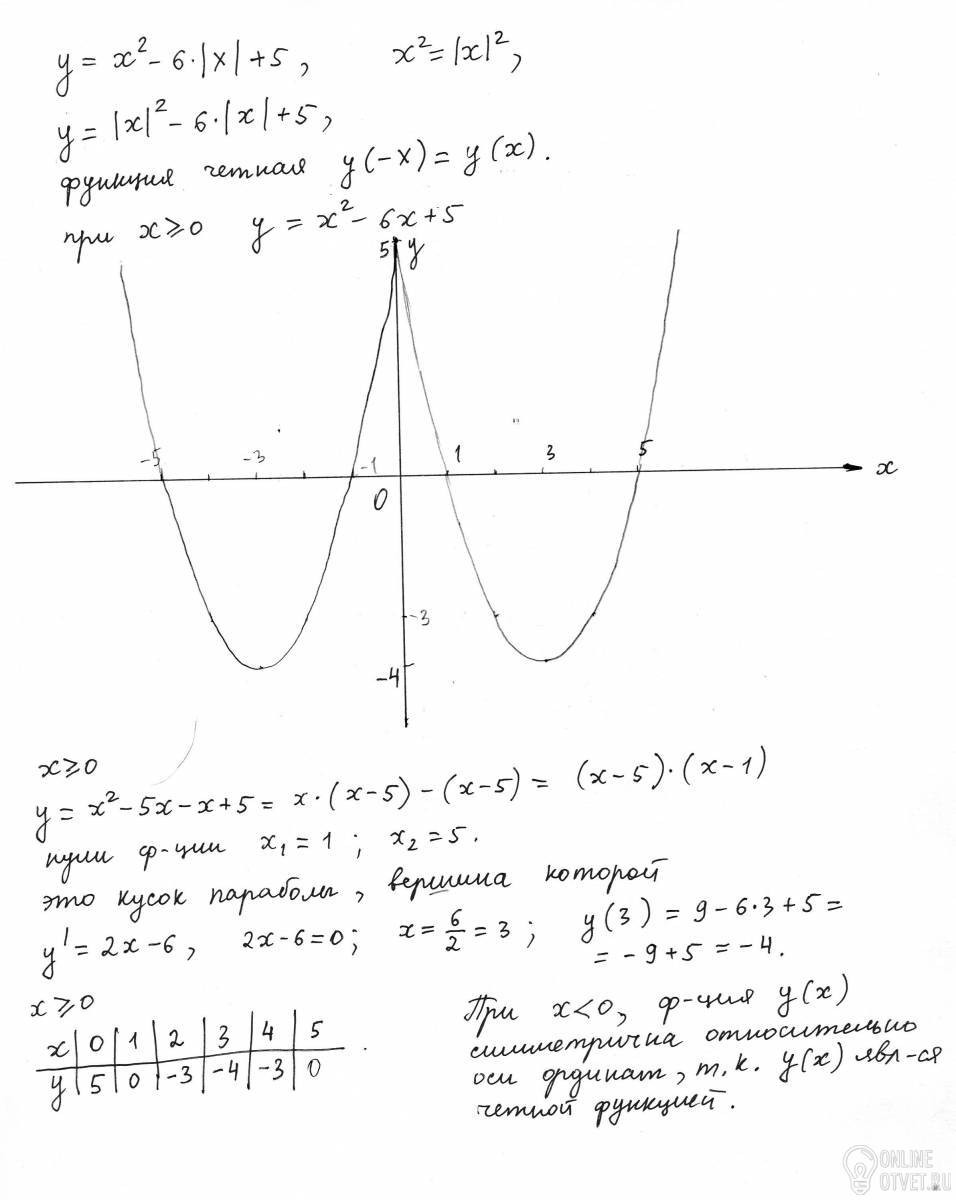 y = x² - 6·|x| + 5, x² = |x|²,
y = |x|² - 6·|x| + 5,
функция четная y(-x) = y(x).
при x ≥ 0 y = x² - 6x + 5
5 y
-5 -3 -1 1 3 5 x
0
-3
-4
x ≥ 0
y = x² - 5x - x + 5 = x·(x-5) - (x-5) = (x-5)·(x-1)
нули ф-ции x₁ = 1 ; x₂ = 5.
это кусок параболы, вершина которой
y' = 2x - 6, 2x - 6 = 0; x = 6/2 = 3 ; y(3) = 9 - 6·3 + 5 =
= -9 + 5 = -4.
x ≥ 0
x | 0 | 1 | 2 | 3 | 4 | 5
y | 5 | 0 | -3 | -4 | -3 | 0
При x < 0, ф-ция y(x)
симметрична относительно
оси ординат, т.к. y(x) явл-ся
четной функцией.
ONLINE
OTVET.RU